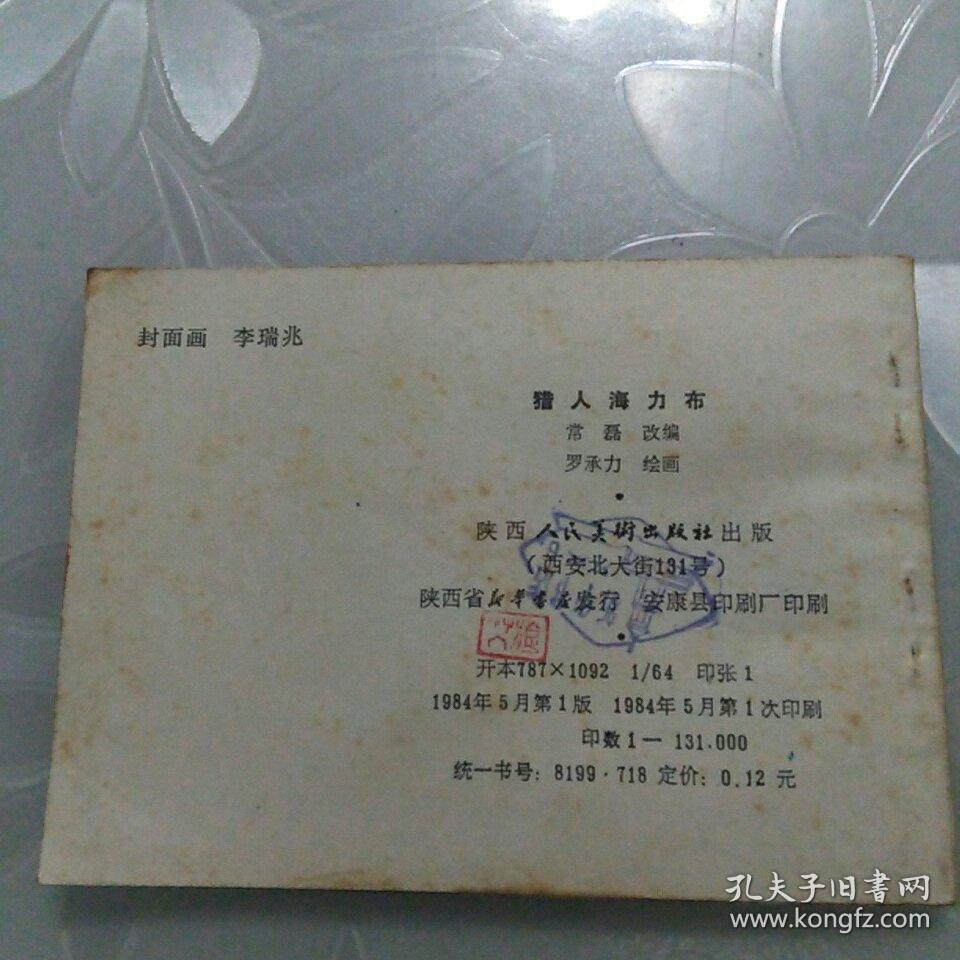 封面画 李瑞兆
猎人海力布
常磊 改编
罗承力 绘画
陕西人民美術出版社出版
(西安北大街131号)
陕西省新华书店发行 安康县印刷厂印刷
开本787×1092 1/64 印张1
1984年5月第1版 1984年5月第1次印刷
印数1—131.000
统一书号:8199·718 定价:0.12元
孔夫子旧書网
www.kongfz.com